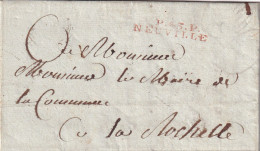 P. P.
NEUVILLE
A Monsieur
Monsieur le Maire de
la Commune
a la Rochelle